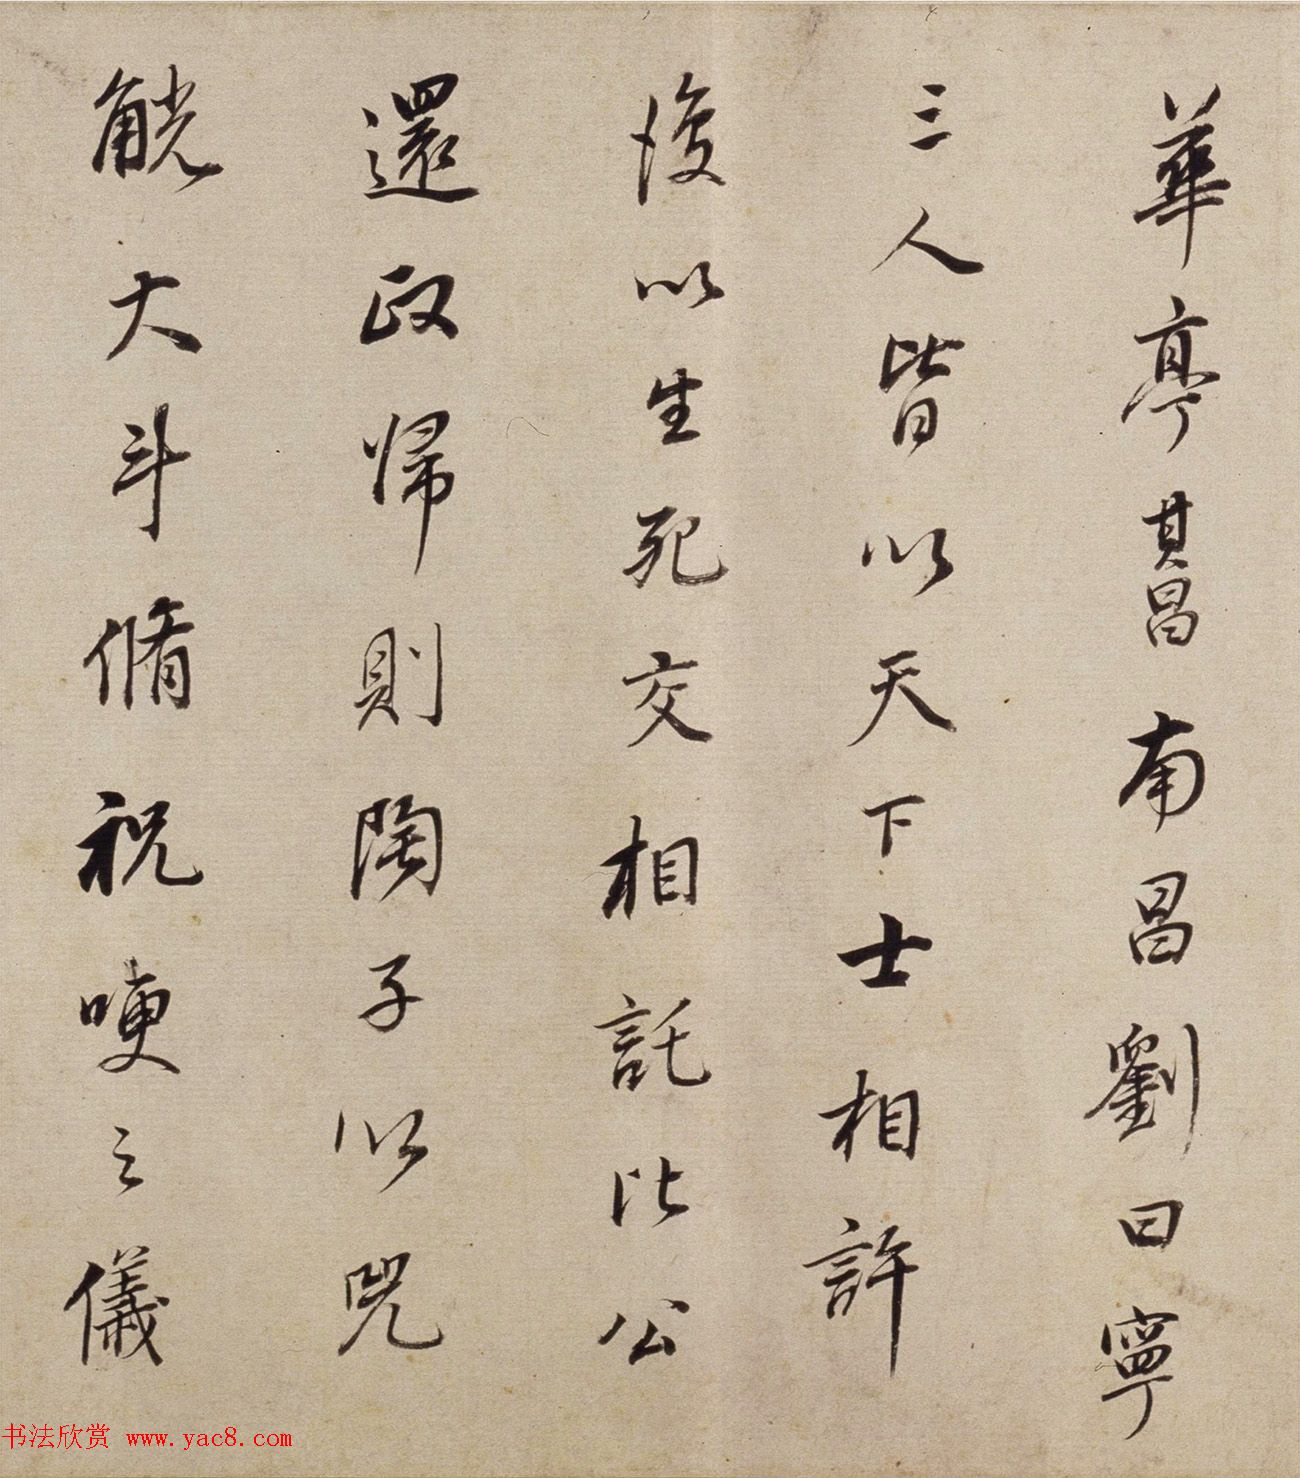 華亭其昌南昌劉曰寧
三人皆以天下士相許
後以生死交相託比公
還政歸則陶子以兕
觥大斗脩祝哽之儀
书法欣赏 www.yac8.com